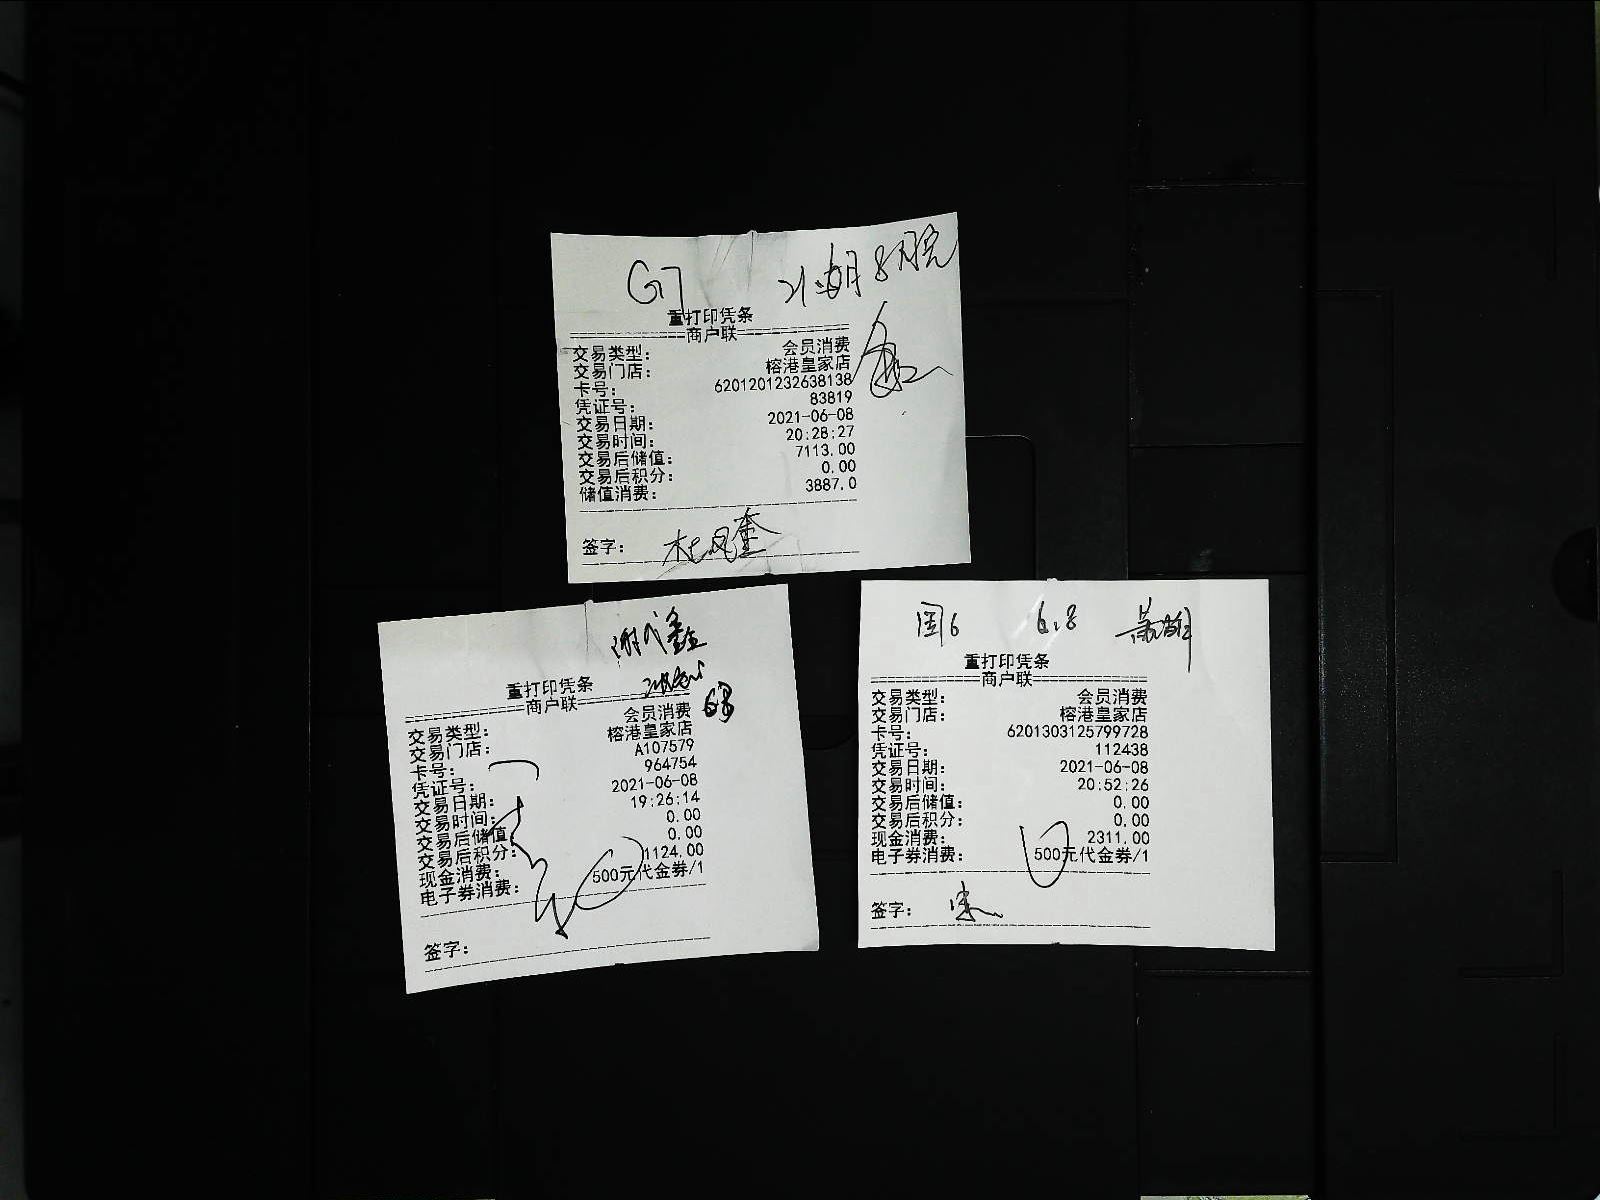 G7
重打印凭条
商户联
交易类型: 会员消费
交易门店: 榕港皇家店
卡号: 6201201232638138
凭证号: 83819
交易日期: 2021-06-08
交易时间: 20:28:27
交易后储值: 7113.00
交易后积分: 0.00
储值消费: 3887.0
签字: 杜凤奎
重打印凭条
商户联
交易类型: 会员消费
交易门店: 榕港皇家店
卡号: A107579
凭证号: 964754
交易日期: 2021-06-08
交易时间: 19:26:14
交易后储值: 0.00
交易后积分: 0.00
现金消费: 1124.00
电子券消费: 500元代金券/1
签字:
国6 6.8
重打印凭条
商户联
交易类型: 会员消费
交易门店: 榕港皇家店
卡号: 6201303125799728
凭证号: 112438
交易日期: 2021-06-08
交易时间: 20:52:26
交易后储值: 0.00
交易后积分: 0.00
现金消费: 2311.00
电子券消费: 500元代金券/1
签字: